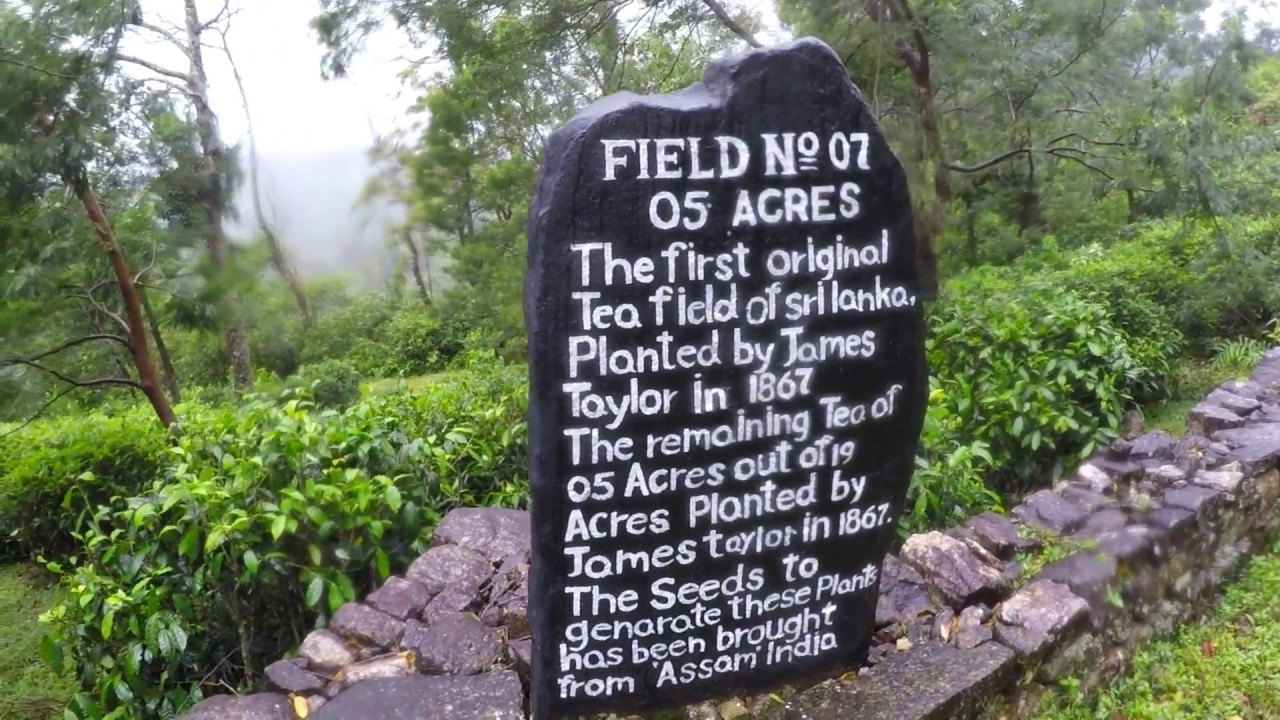 FIELD Nº 07
05 ACRES
The first original
Tea field of sri lanka,
Planted by James
Taylor in 1867
The remaining Tea of
05 Acres out of 19
Acres Planted by
James taylor in 1867.
The Seeds to
genarate these Plants
has been brought
from 'Assam' India